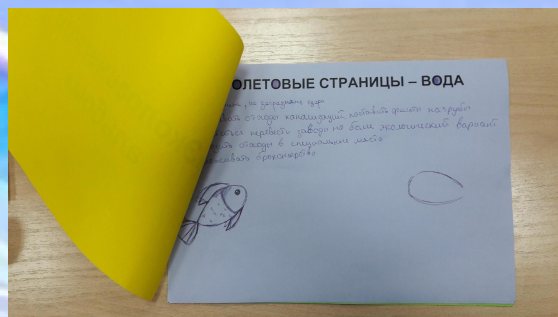 ОЛЕТОВЫЕ СТРАНИЦЫ – ВОДА
не загрязнять озера
отходы канализаций, поставить фильтры на трубы
перевести заводы на более экологический вариант
отходы в специальные места
браконьерство